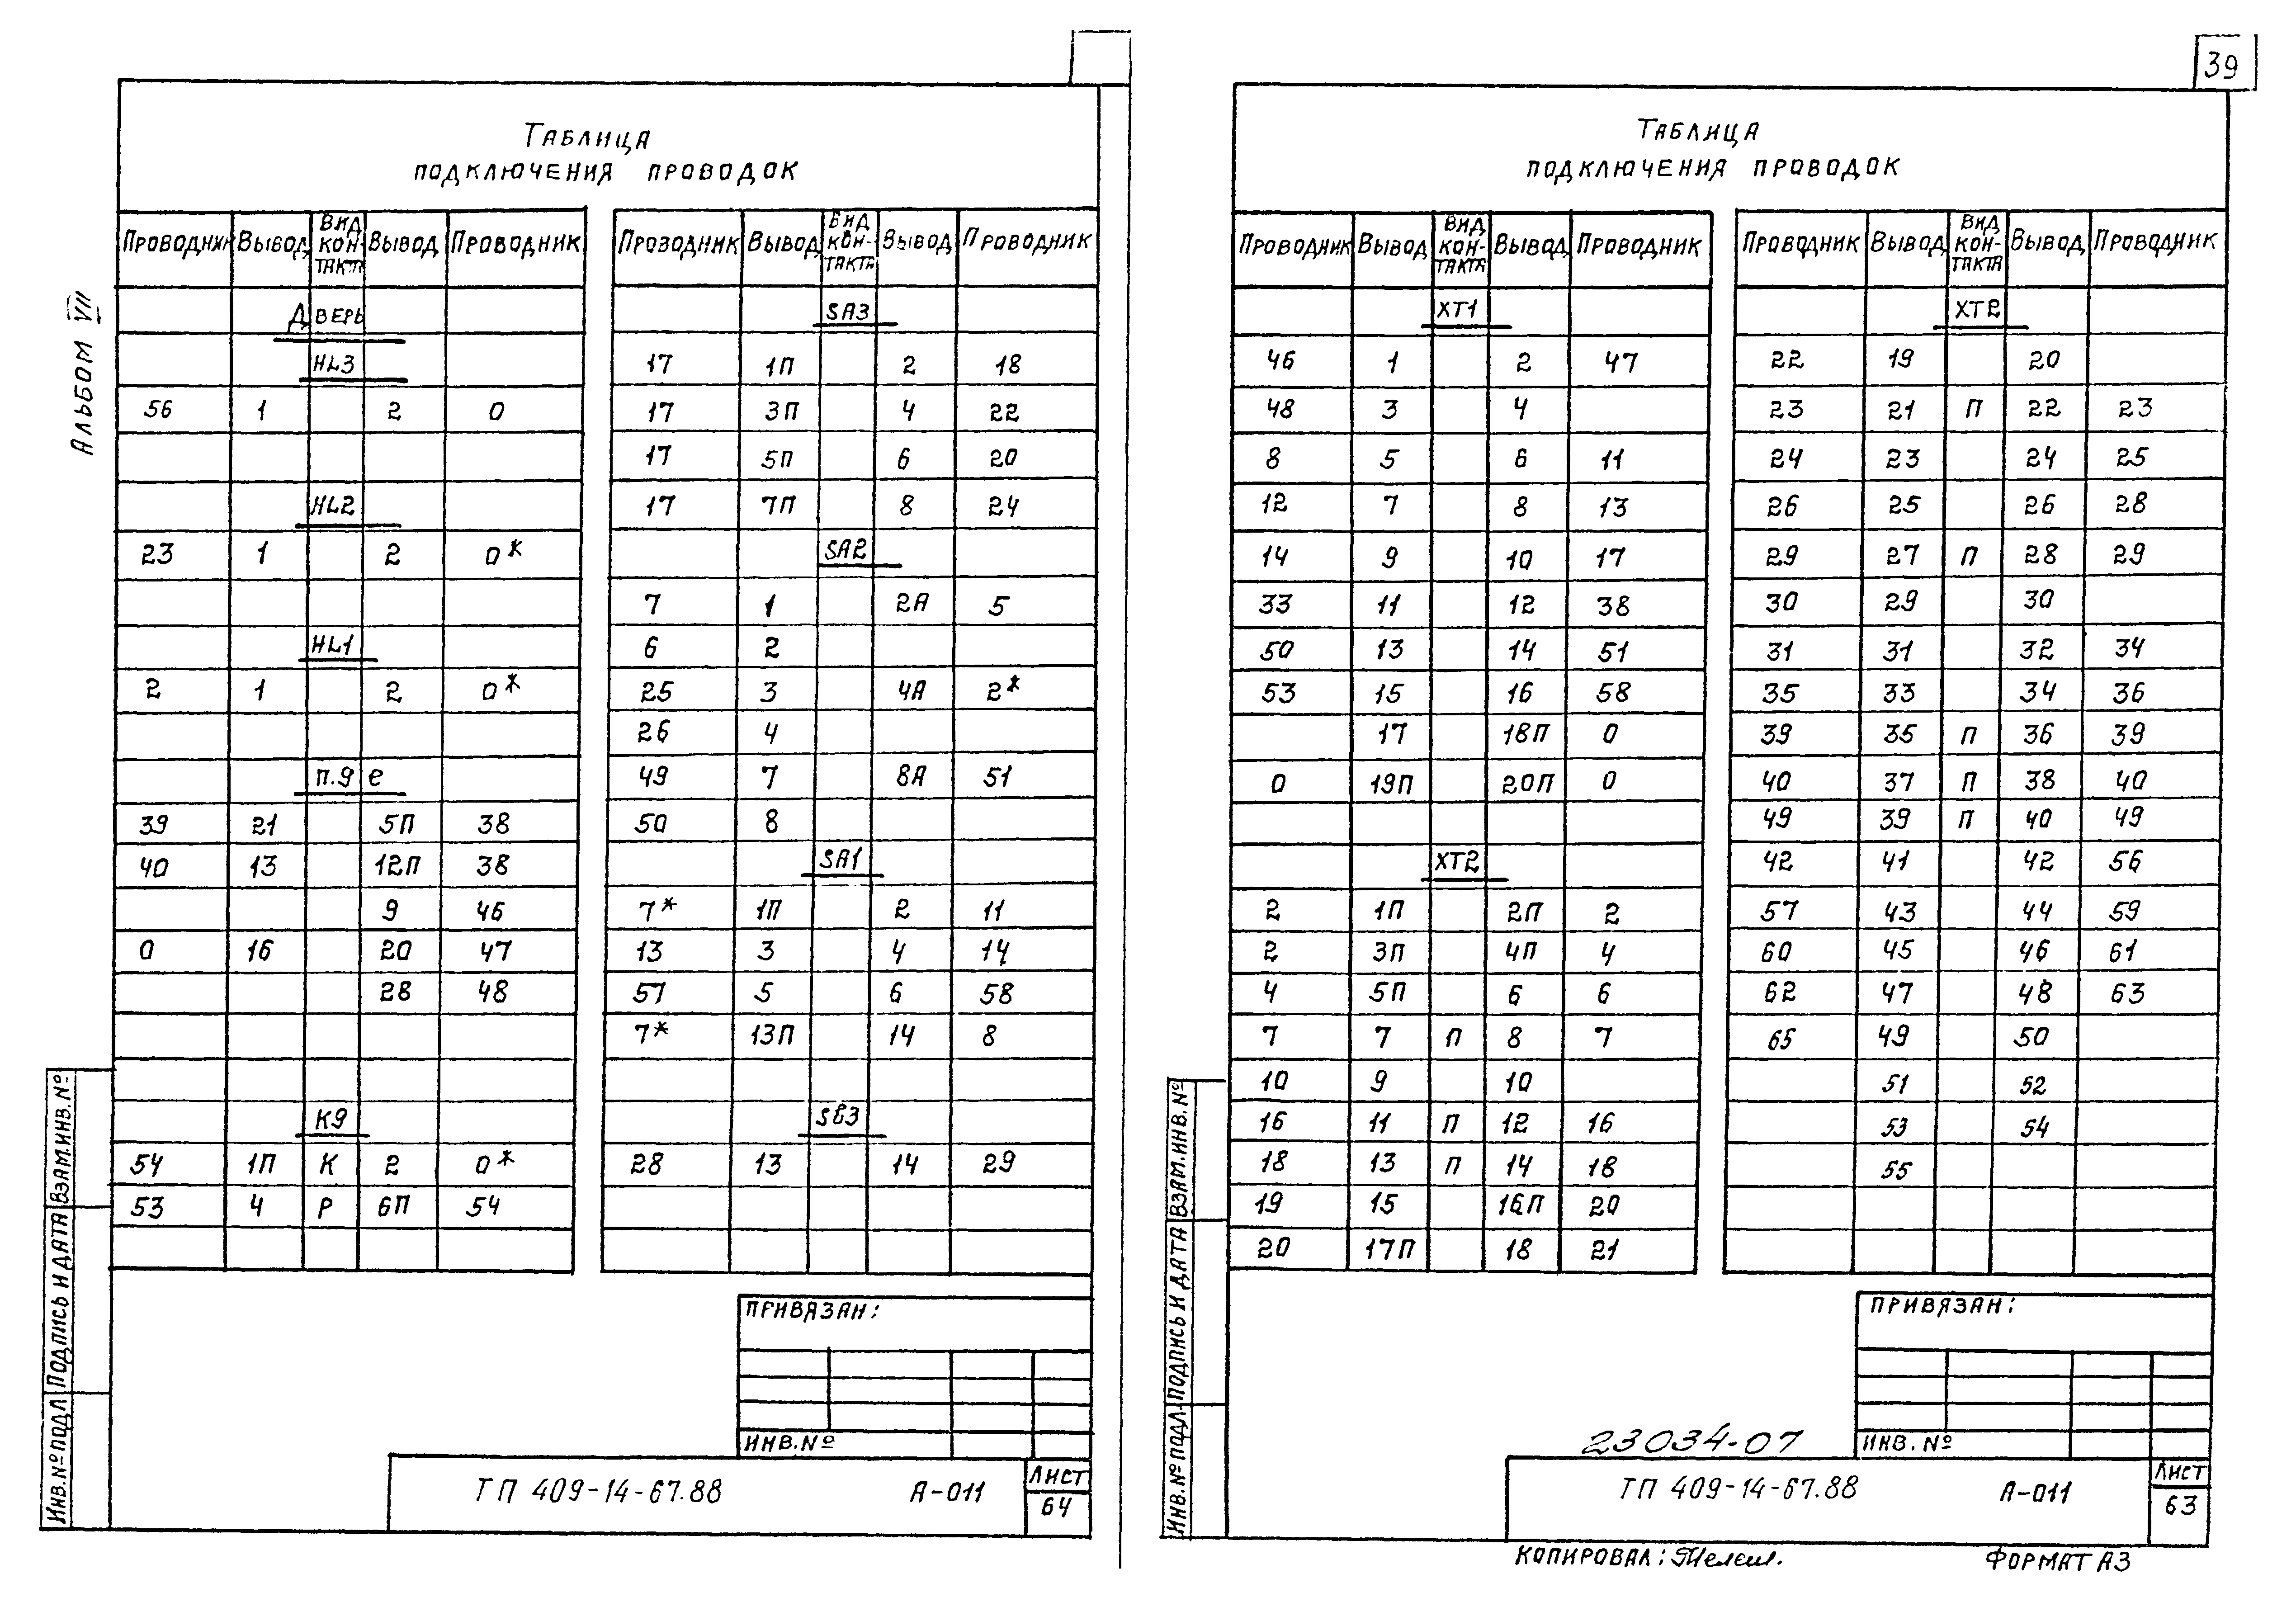 39
Альбом VII
Таблица
подключения проводок
Проводник Вывод Вид контакта Вывод Проводник
Дверь
HL3
56 1 2 0
HL2
23 1 2 0*
HL1
2 1 2 0*
п.9 е
39 21 5П 38
40 13 12П 38
9 46
0 16 20 47
28 48
К9
54 1П К 2 0*
53 4 Р 6П 54
Проводник Вывод Вид контакта Вывод Проводник
SA3
17 1П 2 18
17 3П 4 22
17 5П 6 20
17 7П 8 24
SA2
7 1 2А 5
6 2
25 3 4А 2*
26 4
49 7 8А 51
50 8
SA1
7* 1П 2 11
13 3 4 14
57 5 6 58
7* 13П 14 8
28 13 14 29
Привязан:
Инв.№
ТП 409-14-67.88 А-011 Лист 64
Инв.№подл Подпись и дата Взам.инв.№
Таблица
подключения проводок
Проводник Вывод Вид контакта Вывод Проводник
XT1
46 1 2 47
48 3 4
8 5 6 11
12 7 8 13
14 9 10 17
33 11 12 38
50 13 14 51
53 15 16 58
17 18П 0
0 19П 20П 0
XT2
2 1П 2П 2
2 3П 4П 4
4 5П 6 6
7 7 П 8 7
10 9 10
16 11 П 12 16
18 13 П 14 18
19 15 16П 20
20 17П 18 21
Проводник Вывод Вид контакта Вывод Проводник
XT2
22 19 20
23 21 П 22 23
24 23 24 25
26 25 26 28
29 27 П 28 29
30 29 30
31 31 32 34
35 33 34 36
39 35 П 36 39
40 37 П 38 40
49 39 П 40 49
42 41 42 56
57 43 44 59
60 45 46 61
62 47 48 63
65 49 50
51 52
53 54
55
Привязан:
Инв.№
23034-07
ТП 409-14-67.88 А-011 Лист 63
Инв.№подл. Подпись и дата Взам.инв.№
Копировал: Формат А3